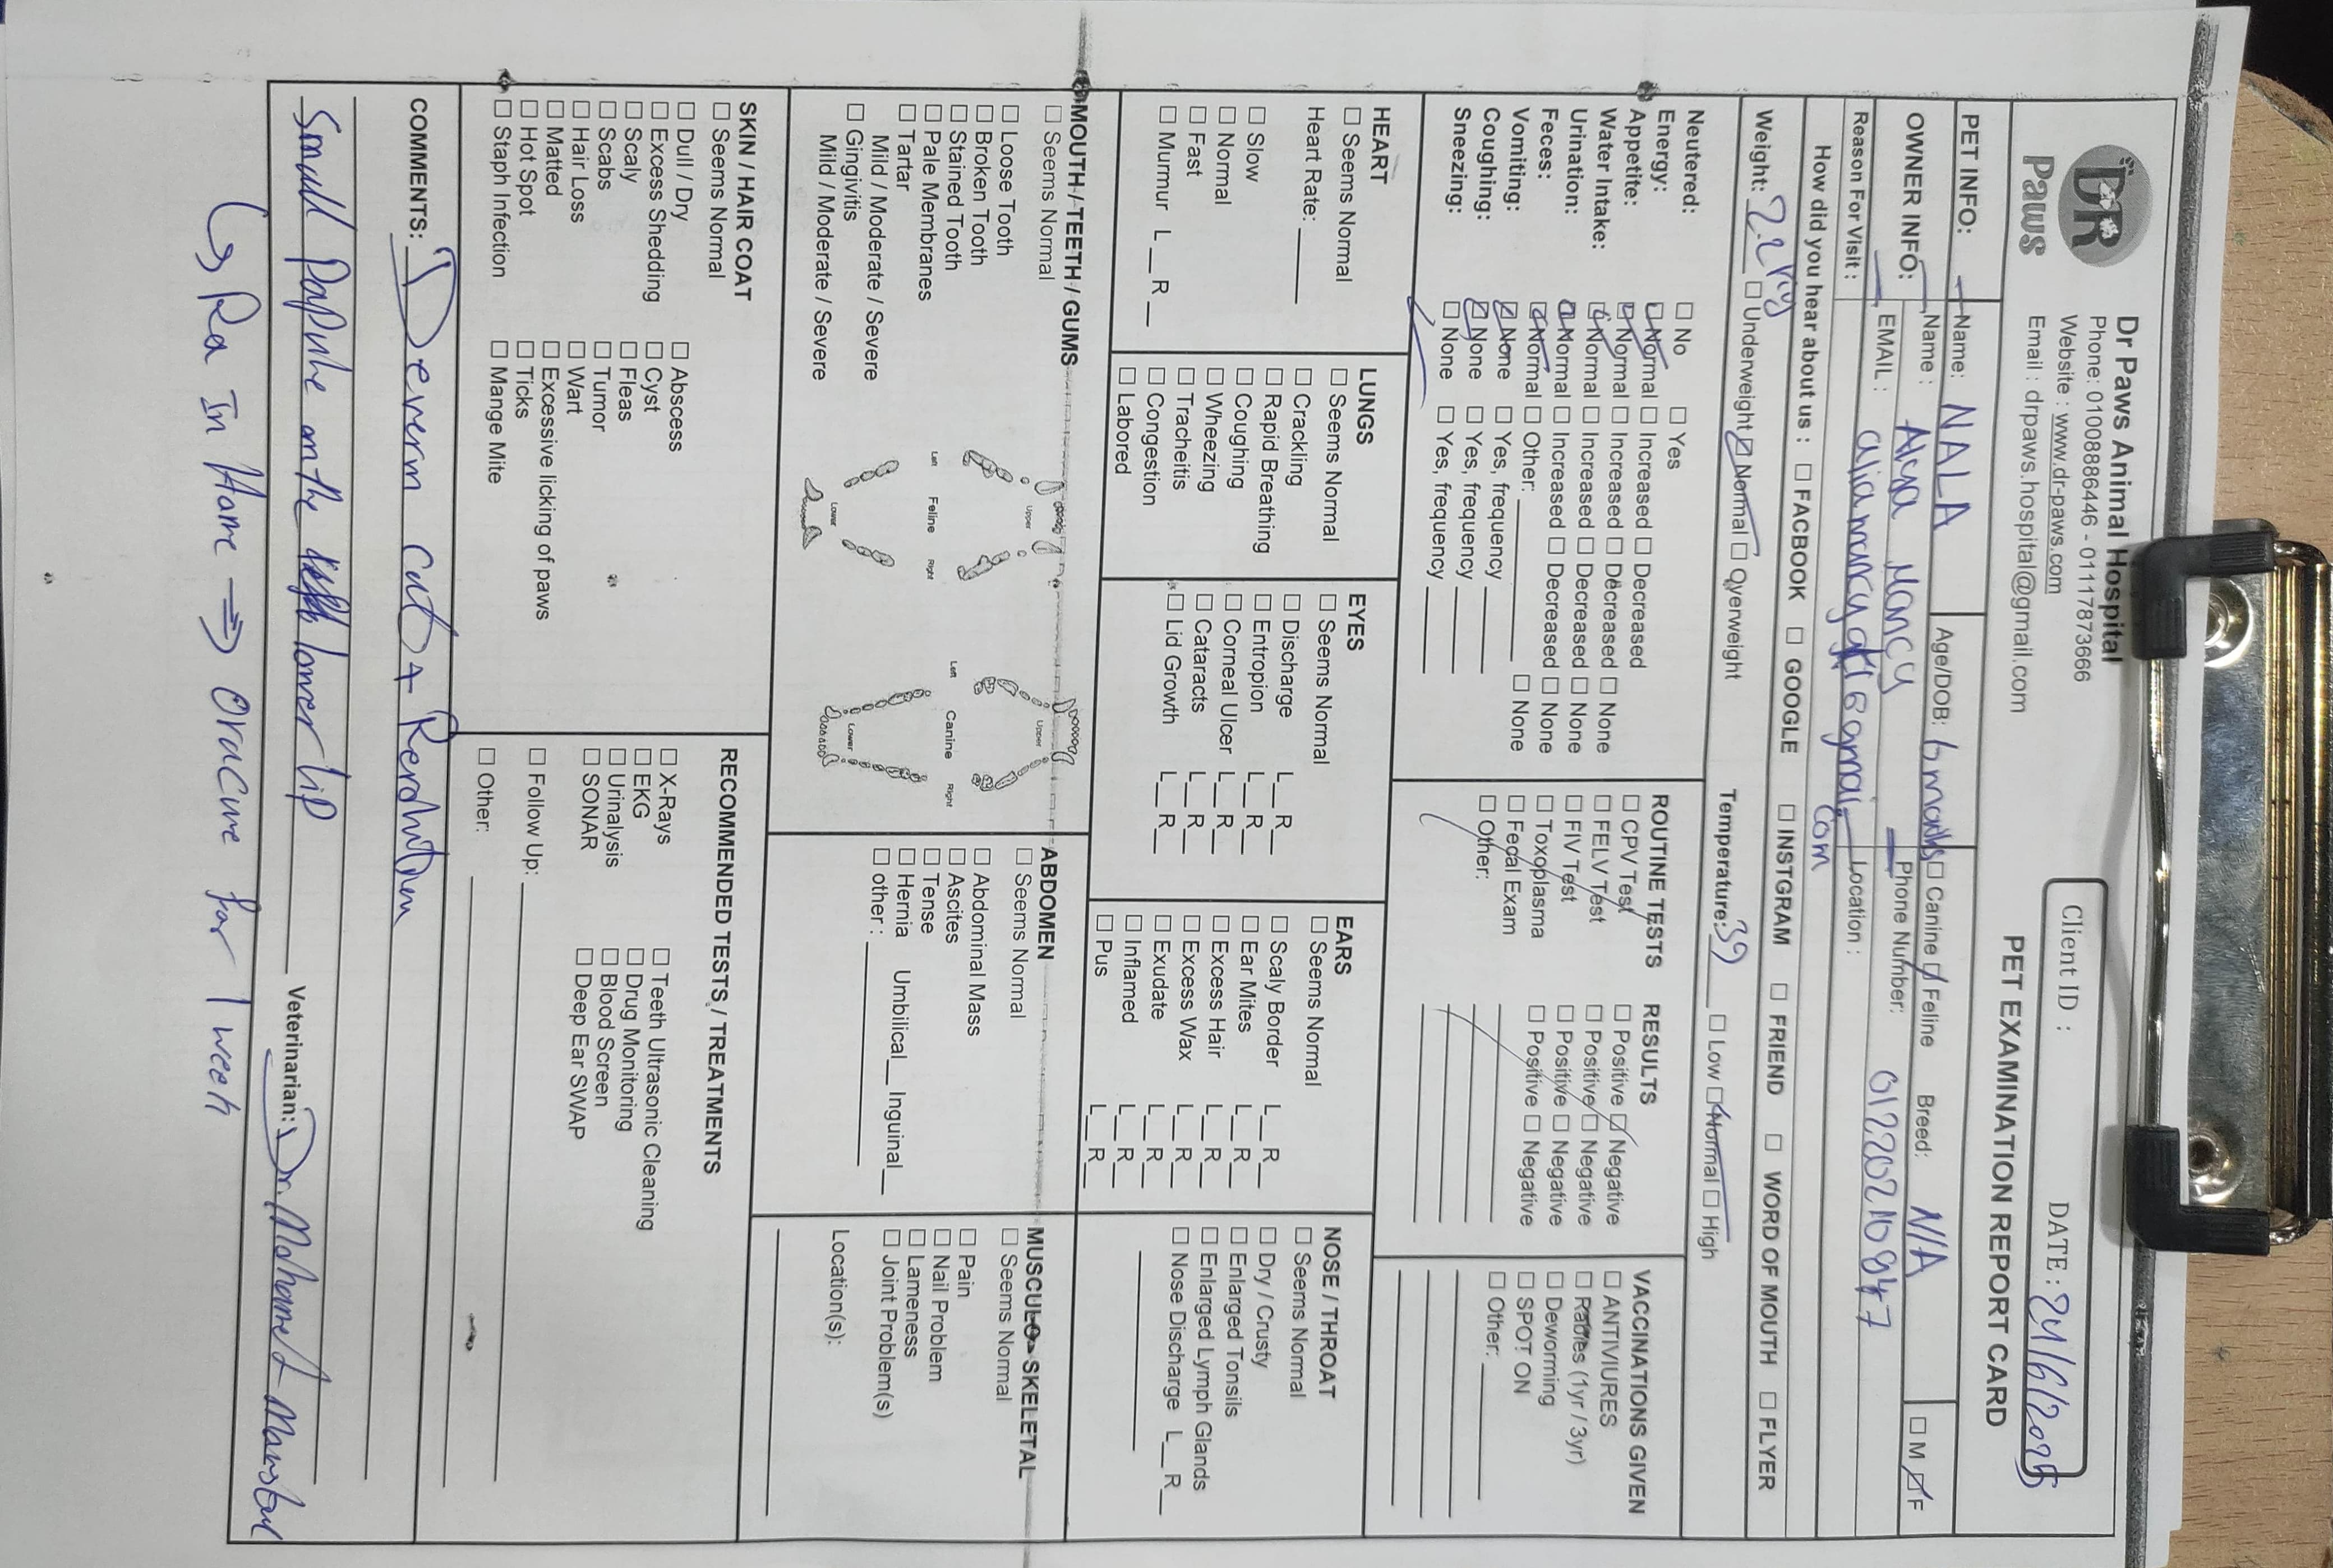 DR
Paws
Dr Paws Animal Hospital
Phone: 01008886446 - 01117873666
Website : www.dr-paws.com
Email : drpaws.hospital@gmail.com
Client ID :
DATE : 24/6/2025
PET EXAMINATION REPORT CARD
PET INFO: Name: NALA Age/DOB: 6 months ☐ Canine ☑ Feline Breed: N/A ☐ M ☑ F
OWNER INFO: Name : Alya Nancy Phone Number: 01220210947
EMAIL : Location :
Reason For Visit :
How did you hear about us : ☐ FACBOOK ☐ GOOGLE ☐ INSTGRAM ☐ FRIEND ☐ WORD OF MOUTH ☐ FLYER
Weight: 2.2 kg ☐ Underweight ☑ Normal ☐ Overweight Temperature: 39 ☐ Low ☑ Normal ☐ High
Neutered: ☐ No ☐ Yes
Energy: ☑ Normal ☐ Increased ☐ Decreased
Appetite: ☑ Normal ☐ Increased ☐ Decreased ☐ None
Water Intake: ☑ Normal ☐ Increased ☐ Decreased ☐ None
Urination: ☑ Normal ☐ Increased ☐ Decreased ☐ None
Feces: ☑ Normal ☐ Other: ☐ None
Vomiting: ☑ None ☐ Yes, frequency
Coughing: ☑ None ☐ Yes, frequency
Sneezing: ☐ None ☐ Yes, frequency
ROUTINE TESTS RESULTS
☐ CPV Test ☐ Positive ☑ Negative
☐ FELV Test ☐ Positive ☐ Negative
☐ FIV Test ☐ Positive ☐ Negative
☐ Toxoplasma ☐ Positive ☐ Negative
☐ Fecal Exam
☐ Other:
VACCINATIONS GIVEN
☐ ANTIVIURES
☐ Rabies (1yr / 3yr)
☐ Deworming
☐ SPOT ON
☐ Other:
HEART
☐ Seems Normal
Heart Rate:
☐ Slow
☐ Normal
☐ Fast
☐ Murmur L__ R__
LUNGS
☐ Seems Normal
☐ Crackling
☐ Rapid Breathing
☐ Coughing
☐ Wheezing
☐ Tracheitis
☐ Congestion
☐ Labored
EYES
☐ Seems Normal
☐ Discharge L__ R__
☐ Entropion L__ R__
☐ Corneal Ulcer L__ R__
☐ Cataracts L__ R__
☐ Lid Growth L__ R__
EARS
☐ Seems Normal
☐ Scaly Border L__ R__
☐ Ear Mites L__ R__
☐ Excess Hair L__ R__
☐ Excess Wax L__ R__
☐ Exudate L__ R__
☐ Inflamed L__ R__
☐ Pus L__ R__
NOSE / THROAT
☐ Seems Normal
☐ Dry / Crusty
☐ Enlarged Tonsils
☐ Enlarged Lymph Glands
☐ Nose Discharge L__ R__
MOUTH / TEETH / GUMS
☐ Seems Normal
☐ Loose Tooth
☐ Broken Tooth
☐ Stained Tooth
☐ Pale Membranes
☐ Tartar
Mild / Moderate / Severe
☐ Gingivitis
Mild / Moderate / Severe
Upper
Left Feline Right
Lower
Upper
Left Canine Right
Lower
ABDOMEN
☐ Seems Normal
☐ Abdominal Mass
☐ Ascites
☐ Tense
☐ Hernia Umbilical__ Inguinal__
☐ other :
MUSCULO- SKELETAL
☐ Seems Normal
☐ Pain
☐ Nail Problem
☐ Lameness
☐ Joint Problem(s)
Location(s):
SKIN / HAIR COAT
☐ Seems Normal
☐ Dull / Dry ☐ Abscess
☐ Excess Shedding ☐ Cyst
☐ Scaly ☐ Fleas
☐ Scabs ☐ Tumor
☐ Hair Loss ☐ Wart
☐ Matted ☐ Excessive licking of paws
☐ Hot Spot ☐ Ticks
☐ Staph Infection ☐ Mange Mite
RECOMMENDED TESTS / TREATMENTS
☐ X-Rays ☐ Teeth Ultrasonic Cleaning
☐ EKG ☐ Drug Monitoring
☐ Urinalysis ☐ Blood Screen
☐ SONAR ☐ Deep Ear SWAP
☐ Follow Up:
☐ Other:
COMMENTS:
Small Papule on the lower lip
Veterinarian: Dr. Mohamed
In Home ⇒ Oracure for 1 week